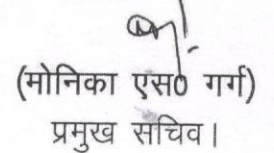 (मोनिका एस0 गर्ग)
प्रमुख सचिव।